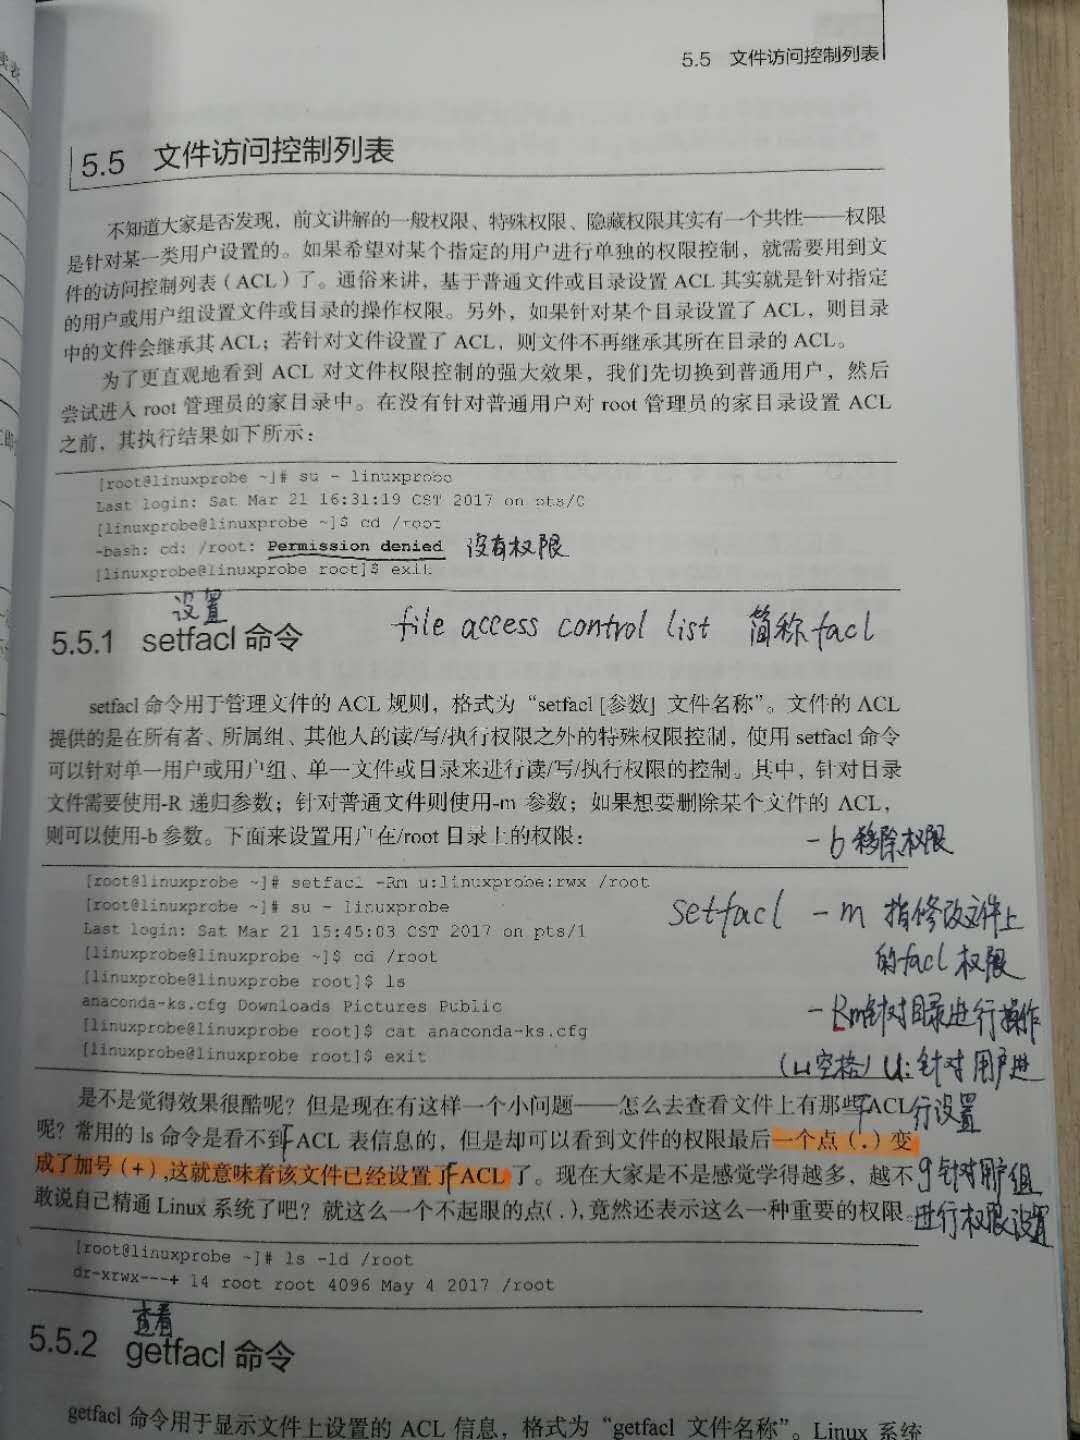 5.5 文件访问控制列表
5.5 文件访问控制列表
不知道大家是否发现，前文讲解的一般权限、特殊权限、隐藏权限其实有一个共性——权限
是针对某一类用户设置的。如果希望对某个指定的用户进行单独的权限控制，就需要用到文
件的访问控制列表（ACL）了。通俗来讲，基于普通文件或目录设置 ACL 其实就是针对指定
的用户或用户组设置文件或目录的操作权限。另外，如果针对某个目录设置了 ACL，则目录
中的文件会继承其 ACL；若针对文件设置了 ACL，则文件不再继承其所在目录的 ACL。
为了更直观地看到 ACL 对文件权限控制的强大效果，我们先切换到普通用户，然后
尝试进入 root 管理员的家目录中。在没有针对普通用户对 root 管理员的家目录设置 ACL
之前，其执行结果如下所示：
[root@linuxprobe ~]# su - linuxprobe
Last login: Sat Mar 21 16:31:19 CST 2017 on pts/0
[linuxprobe@linuxprobe ~]$ cd /root
-bash: cd: /root: Permission denied 没有权限
[linuxprobe@linuxprobe root]$ exit
设置
5.5.1 setfacl 命令 file access control list 简称 facl
setfacl 命令用于管理文件的 ACL 规则，格式为“setfacl [参数] 文件名称”。文件的 ACL
提供的是在所有者、所属组、其他人的读/写/执行权限之外的特殊权限控制，使用 setfacl 命令
可以针对单一用户或用户组、单一文件或目录来进行读/写/执行权限的控制。其中，针对目录
文件需要使用-R 递归参数；针对普通文件则使用-m 参数；如果想要删除某个文件的 ACL，
则可以使用-b 参数。下面来设置用户在/root 目录上的权限：
-b 移除权限
[root@linuxprobe ~]# setfacl -Rm u:linuxprobe:rwx /root
[root@linuxprobe ~]# su - linuxprobe
Last login: Sat Mar 21 15:45:03 CST 2017 on pts/1
[linuxprobe@linuxprobe ~]$ cd /root
[linuxprobe@linuxprobe root]$ ls
anaconda-ks.cfg Downloads Pictures Public
[linuxprobe@linuxprobe root]$ cat anaconda-ks.cfg
[linuxprobe@linuxprobe root]$ exit
setfacl -m 指修改文件上
的facl 权限
-Rm针对目录进行操作
(u空格) u: 针对用户进
行设置
g 针对用户组
进行权限设置
是不是觉得效果很酷呢？但是现在有这样一个小问题——怎么去查看文件上有那些fACL
呢？常用的 ls 命令是看不到f ACL 表信息的，但是却可以看到文件的权限最后一个点（.）变
成了加号（+）,这就意味着该文件已经设置了f ACL 了。现在大家是不是感觉学得越多，越不
敢说自己精通 Linux 系统了吧？就这么一个不起眼的点(.),竟然还表示这么一种重要的权限。
[root@linuxprobe ~]# ls -ld /root
dr-xrwx---+ 14 root root 4096 May 4 2017 /root
查看
5.5.2 getfacl 命令
getfacl 命令用于显示文件上设置的 ACL 信息，格式为“getfacl 文件名称”。Linux 系统